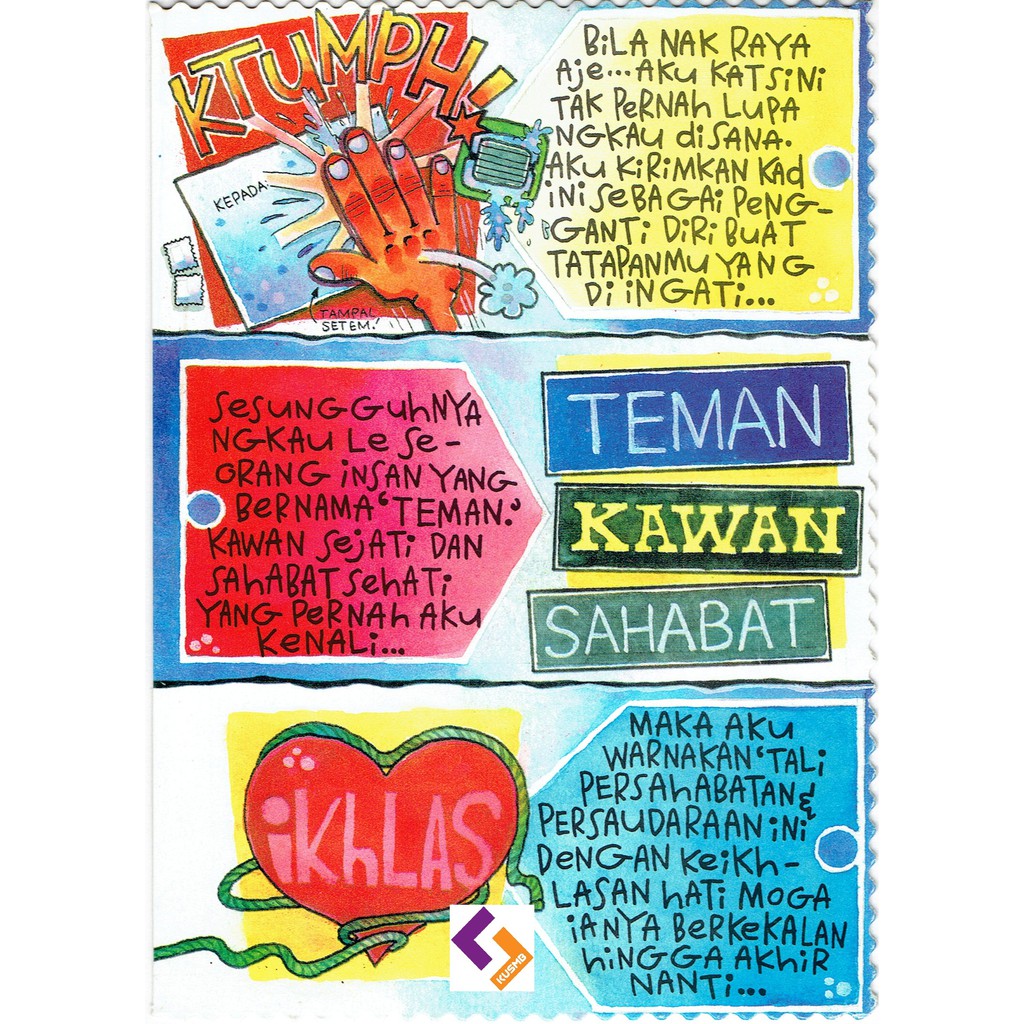 KTUMPH!
KEPADA:
TAMPAL
SETEM!
BILA NAK RAYA
AJE...AKU KATSINI
TAK PERNAH LUPA
NGKAU DISANA.
AKU KIRIMKAN KAD
INI SEBAGAI PENG-
GANTI DIRI BUAT
TATAPANMU YANG
DI INGATI...
SESUNGGUHNYA
NGKAU LE SE-
ORANG INSAN YANG
BERNAMA 'TEMAN.'
KAWAN SEJATI DAN
SAHABAT SEHATI
YANG PERNAH AKU
KENALI...
TEMAN
KAWAN
SAHABAT
IKHLAS
MAKA AKU
WARNAKAN 'TALI
PERSAHABATAN &
PERSAUDARAAN INI
DENGAN KEIKH-
LASAN HATI MOGA
IANYA BERKEKALAN
HINGGA AKHIR
NANTI...
KUSMB